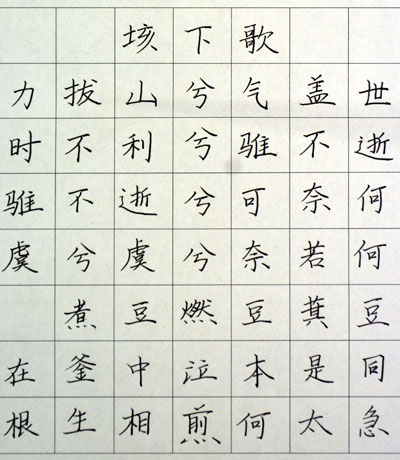 垓下歌
力拔山兮气盖世
时不利兮骓不逝
骓不逝兮可奈何
虞兮虞兮奈若何
煮豆燃豆萁豆
在釜中泣本是同
根生相煎何太急